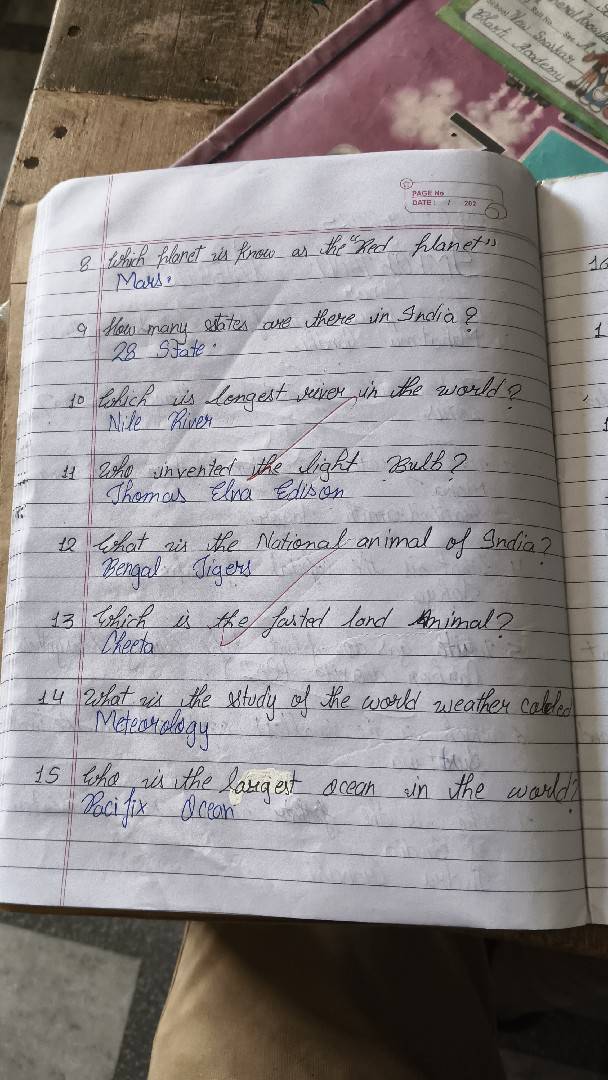 School New Saaskar
Bharti Academy
PAGE No
DATE : / 202
8 Which planet is know as the "Red planet"
Mars.
9 How many states are there in India?
28 State.
10 Which is longest river in the world?
Nile River
11 Who invented the light Bulb?
Thomas Elva Edison
12 What is the National animal of India?
Bengal Tigers
13 Which is the fasted land Animal?
Cheeta
14 What is the study of the world weather called
Meteorology
15 Who is the largest Ocean in the world?
Pacifix Ocean
16
1
1